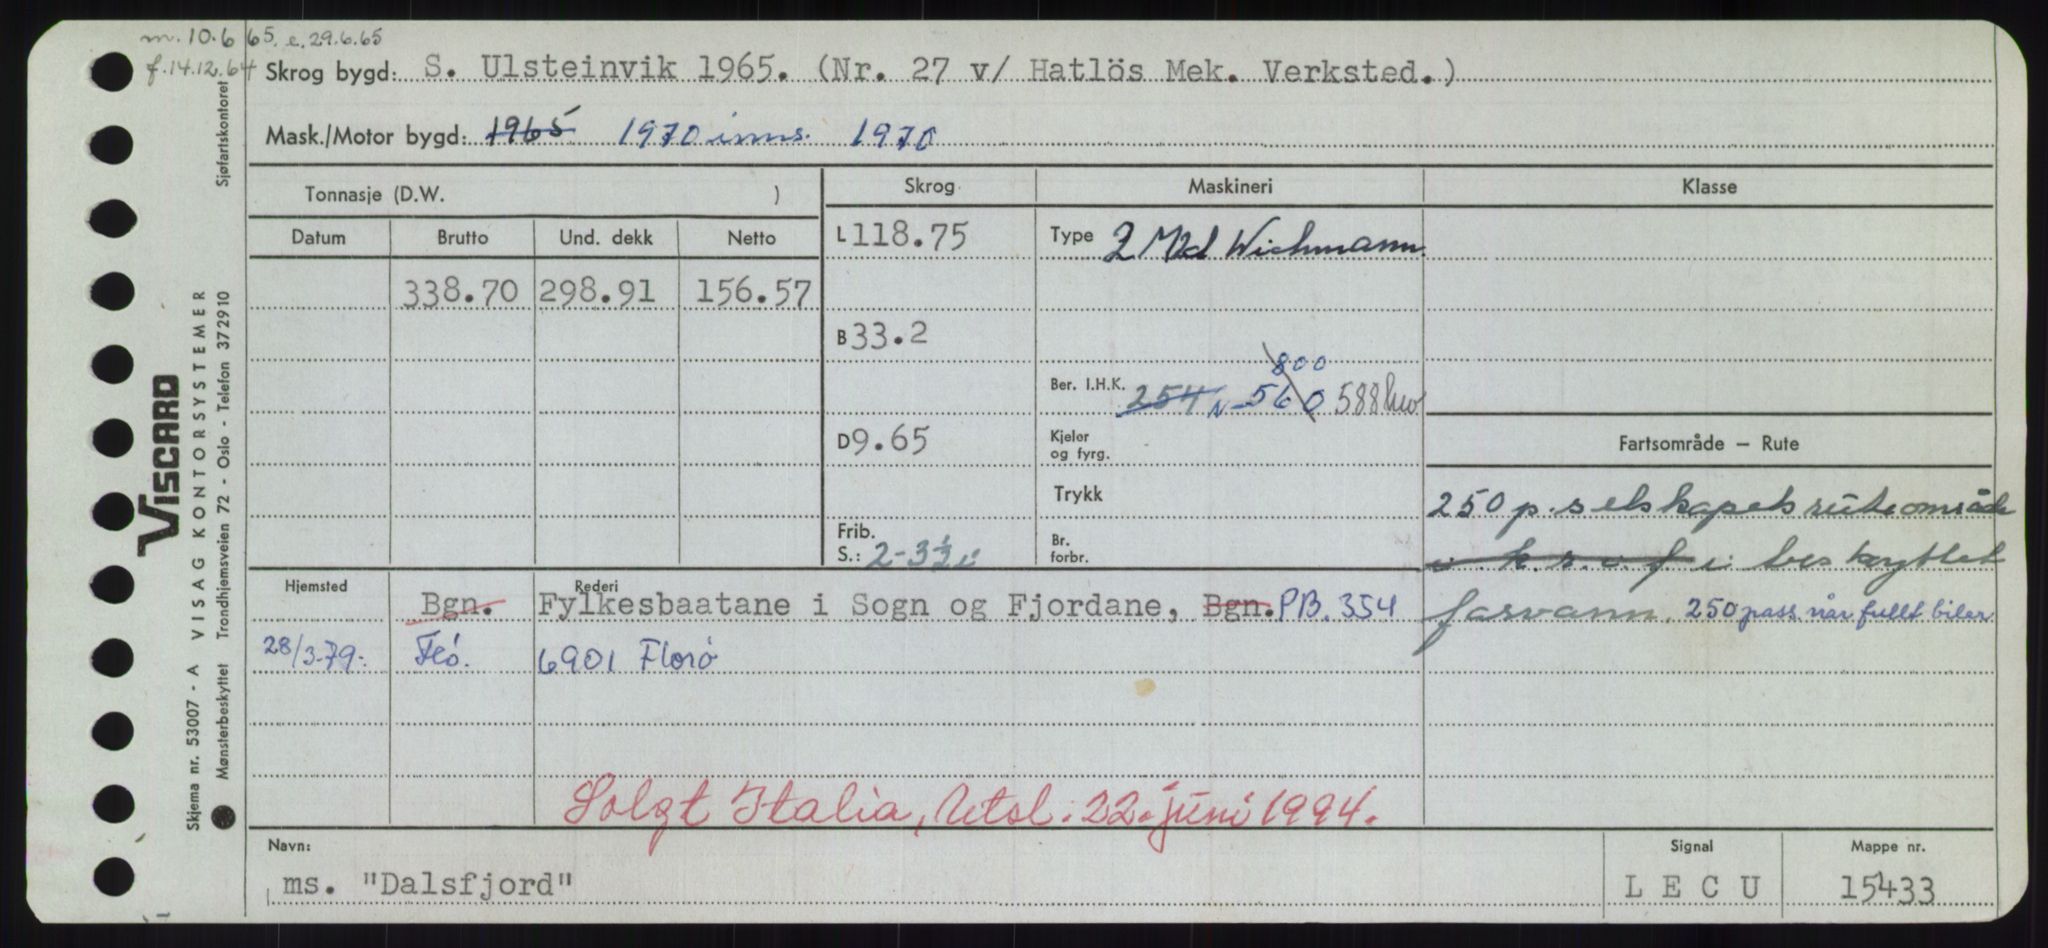 m. 10.6 65. e. 29.6.65
f. 14.12.64
Skrog bygd: S. Ulsteinvik 1965. (Nr. 27 v/ Hatlös Mek. Verksted.)
Mask./Motor bygd: 1965 1970 inns. 1970
Tonnasje (D.W. )
Skrog
Maskineri
Klasse
Datum Brutto Und. dekk Netto
L 118.75
Type 2 Md Wichmann
338.70 298.91 156.57
B 33.2
800
Ber. I.H.K. 254 N 560 588 kw
D 9.65
Kjeler
og fyrg.
Fartsområde – Rute
Trykk
250 p. selskapets ruteområde
Frib.
S.: 2-3½ i
Br.
forbr.
i k.s.o.f i beskyttet
farvann. 250 pass når fullt biler
Hjemsted
Rederi
Bgn. Fylkesbaatane i Sogn og Fjordane, Bgn. PB. 354
28/3-79. Flö. 6901 Florø
Solgt Italia, Utsl. 22. juni 1994.
Navn:
ms. "Dalsfjord"
Signal
L E C U
Mappe nr.
15433
VISCARD
Skjema nr. 53007 - A VISAG KONTORSYSTEMER
Mønsterbeskyttet Trondhjemsveien 72 - Oslo - Telefon 372910
Sjøfartskontoret